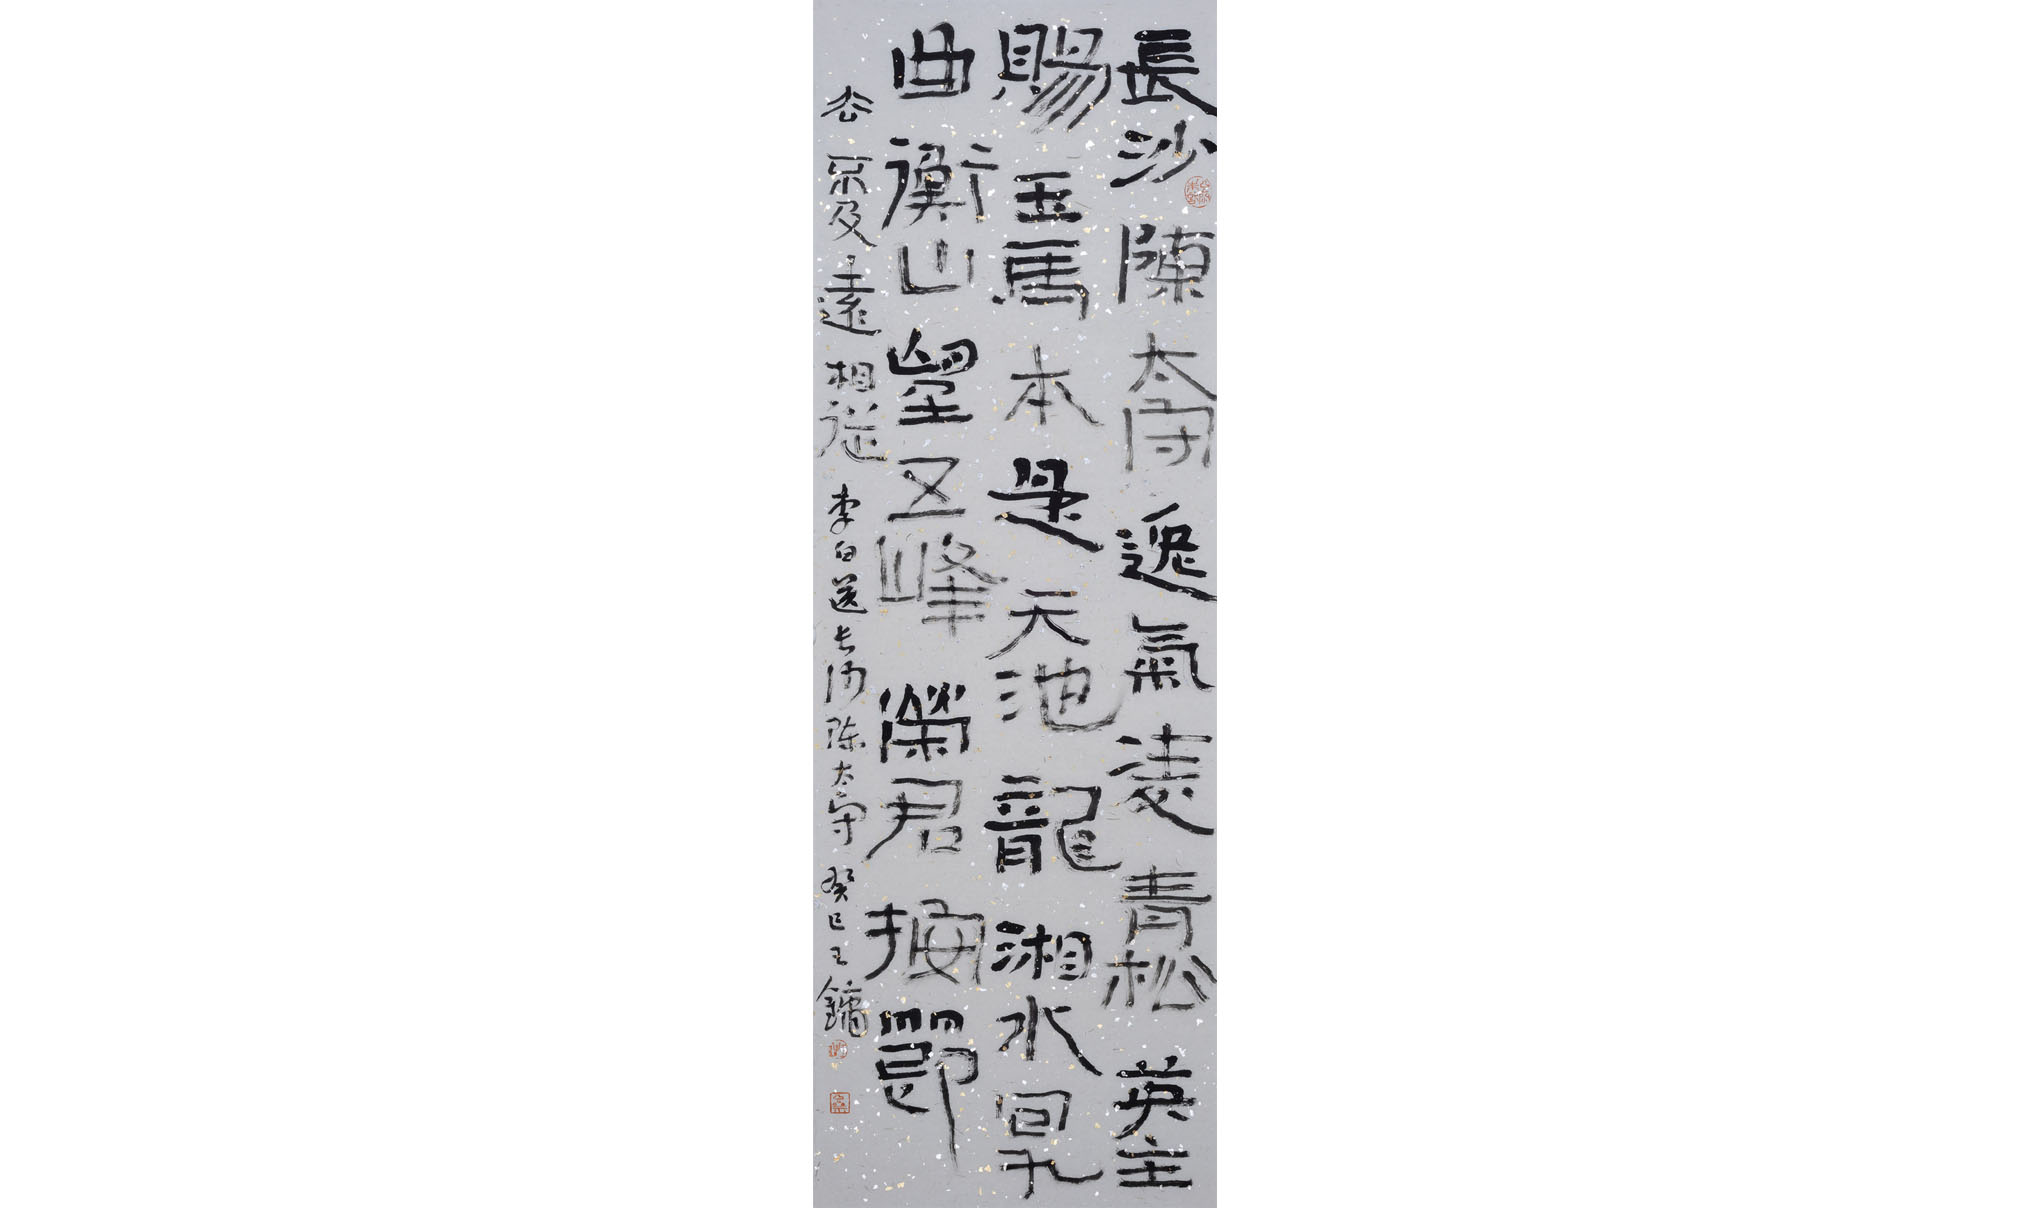 長沙陳太守逸氣凌青松英主
賜玉馬本是天池龍湘水回九
曲衡山望五峰榮君按節
去不及遠相從李白送长沙陈太守癸巳王鏞